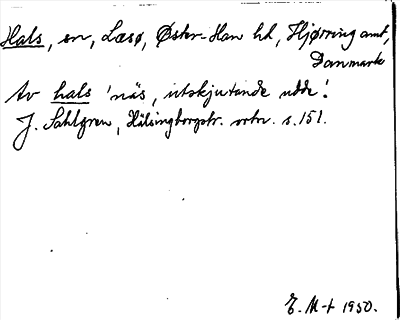 Hals, en, Læsø, Øster-Han hd, Hjørring amt,
Danmark
Av hals 'näs, utskjutande udde'.
J. Sahlgren, Hälsingborgstr. ortn. s. 151.
E. M-t 1950.